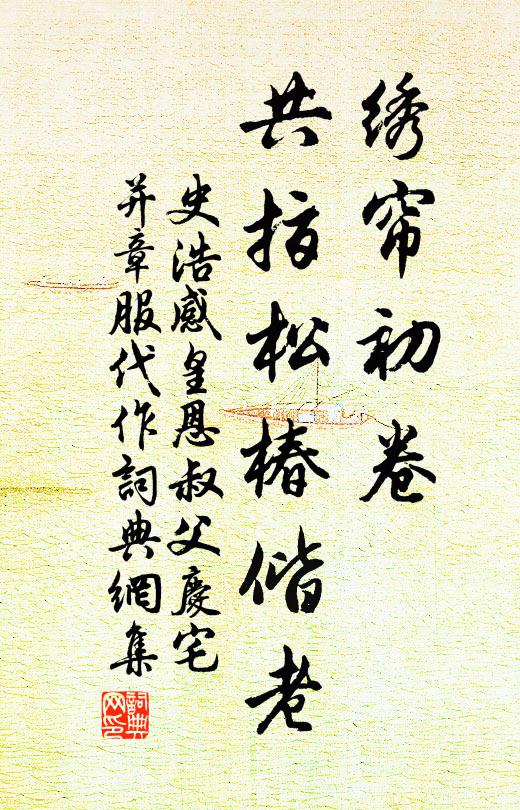 绣帘初卷
共指松椿偕老
史浩感皇恩叔父庆宅
并章服代作詞典網集
詞典网印